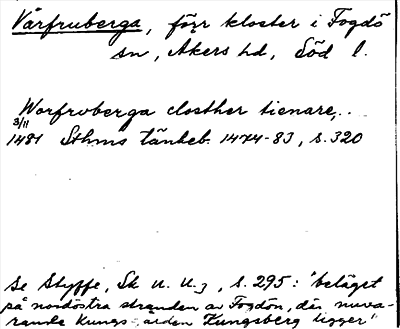 Vårfruberga, förr kloster i Fogdö
sn, Åkers hd, Söd l.
Worfrvberga closther tienare,..
3/11
1481 Sthms tänkeb. 1474-83, s. 320
Se Styffe, Sk U. U.3, s. 295: "beläget
på nordöstra stranden av Fogdön, där nuva-
rande kungs-gården Kungsberg ligger"